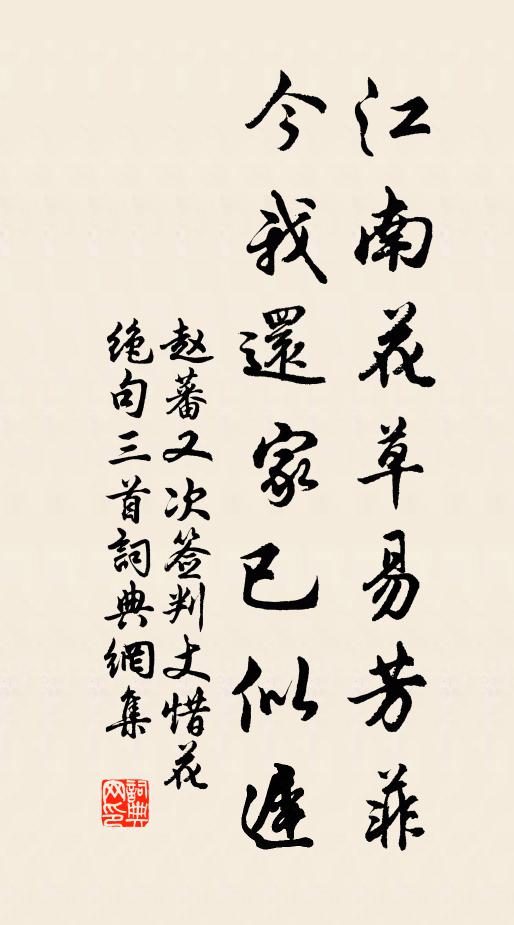 江南花草易芳菲
今我還家已似遲
赵蕃又次签判丈惜花
绝句三首詞典網集
詞典网印